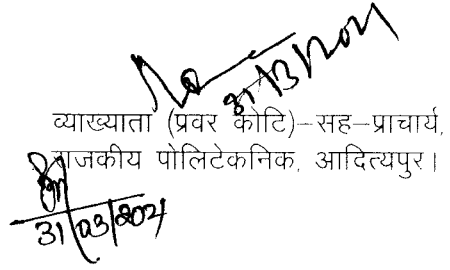 31/3/2021
व्याख्याता (प्रवर कोटि)–सह–प्राचार्य,
राजकीय पोलिटेकनिक, आदित्यपुर।
31/03/2021